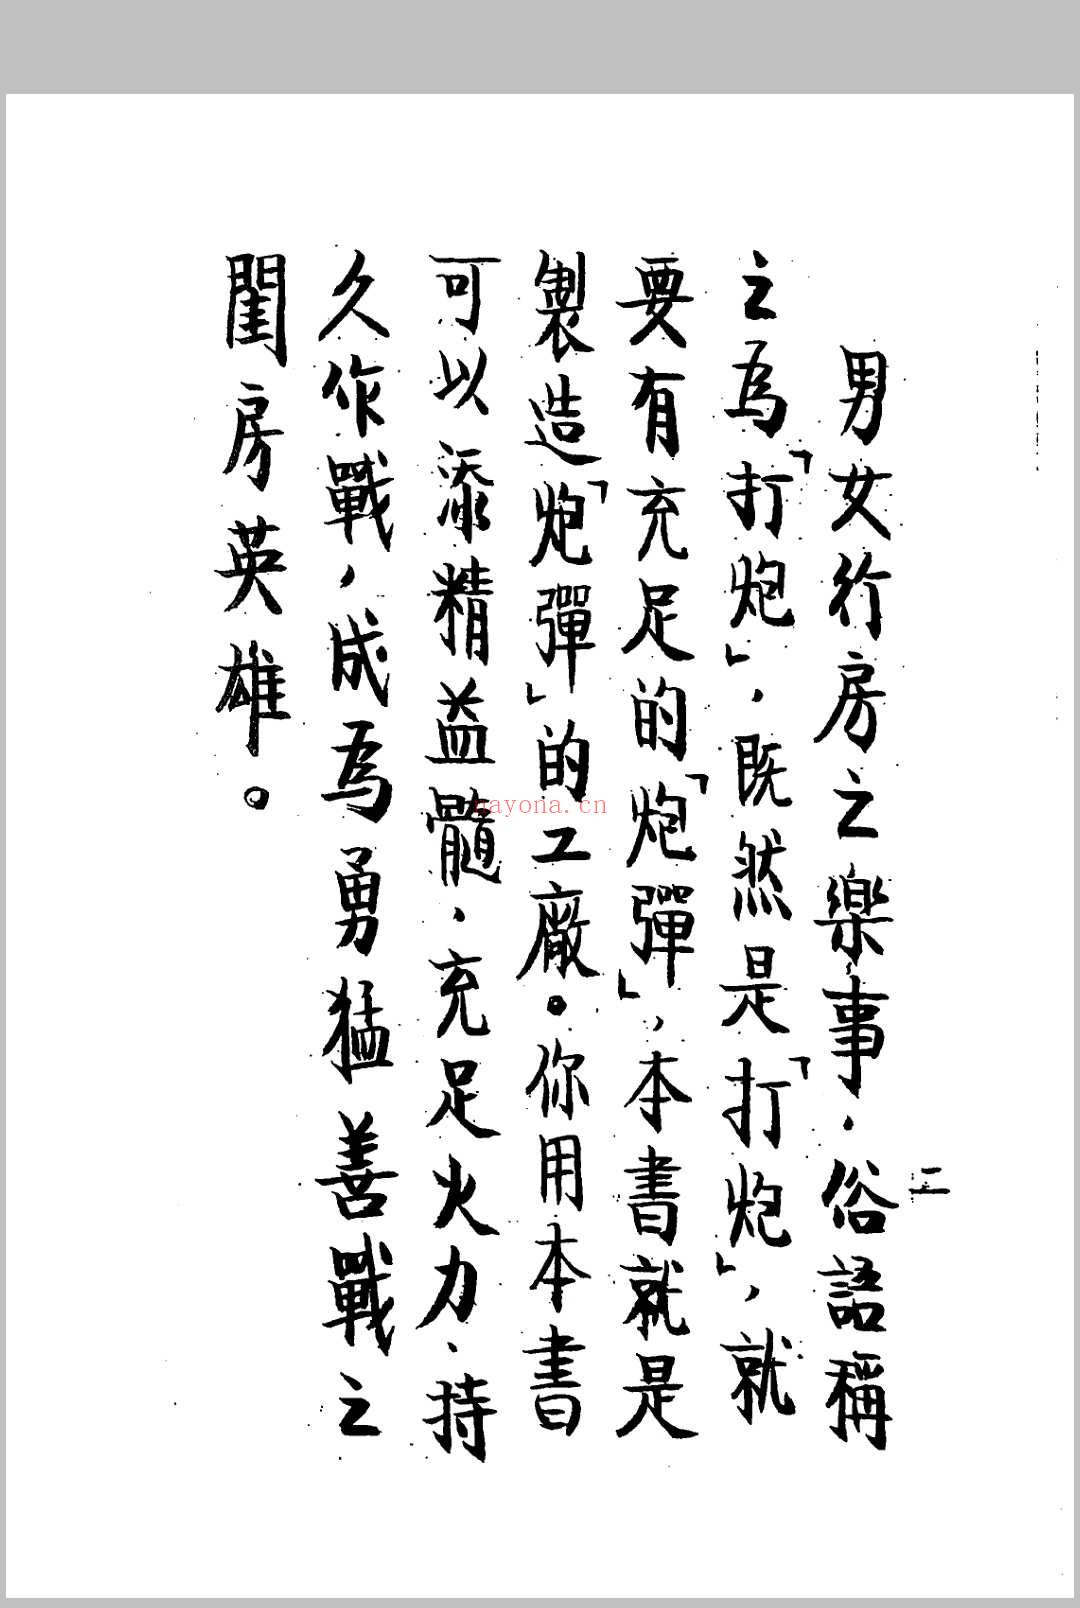 二
男女行房之樂事，俗語稱
之為「打炮」，既然是「打炮」，就
要有充足的「炮彈」，本書就是
製造「炮彈」的工廠。你用本書
可以添精益髓，充足火力，持
久作戰，成為勇猛善戰之
閨房英雄。
nayona.cn